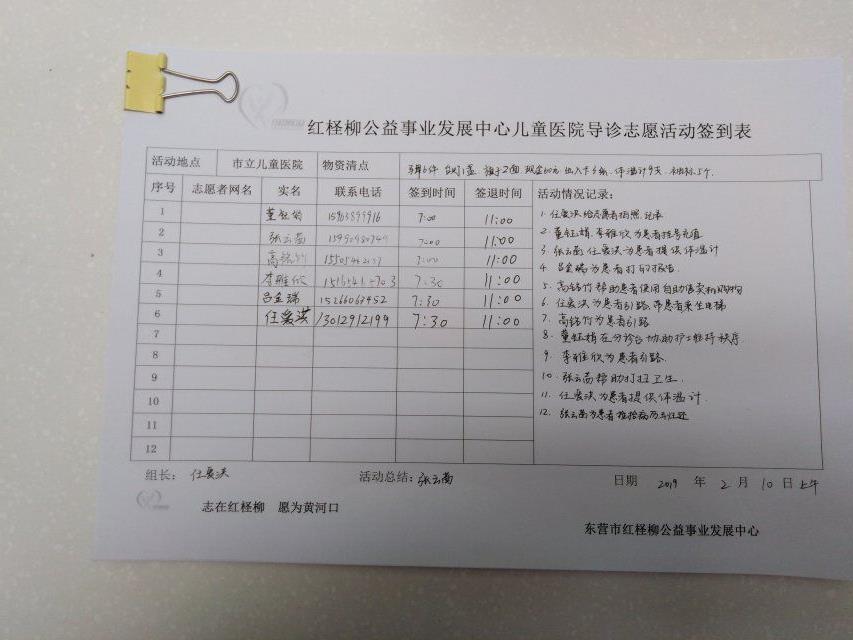 红柽柳公益事业发展中心儿童医院导诊志愿活动签到表
活动地点 市立儿童医院 物资清点
序号 志愿者网名 实名 联系电话 签到时间 签退时间 活动情况记录:
1 董钰娟 7:00 11:00
2 张云茜 7:00 11:00
3 高铭竹 11:00
4 李雅欣 7:30 11:00
5 吕金瑞 15266063452 7:30 11:00
6 任爱洪 13012912199 7:30 11:00
7
8
9
10
11
12
1. 任爱洪给志愿者拍照、记录
2. 董钰娟、李雅欣为患者挂号充值
3. 张云茜、任爱洪为患者提供体温计
4. 吕金瑞为患者打印报告
5. 高铭竹帮助患者使用自助售卖机购物
6. 任爱洪为患者引路、带患者乘坐电梯
7. 高铭竹为患者引路
8. 董钰娟在分诊台协助护士维持秩序
9. 李雅欣为患者引路.
10. 张云茜帮助打扫卫生.
11. 任爱洪为患者提供体温计.
12. 张云茜为患者
组长: 任爱洪 活动总结: 张云茜 日期 2019 年 2 月 10 日上午
志在红柽柳 愿为黄河口
东营市红柽柳公益事业发展中心